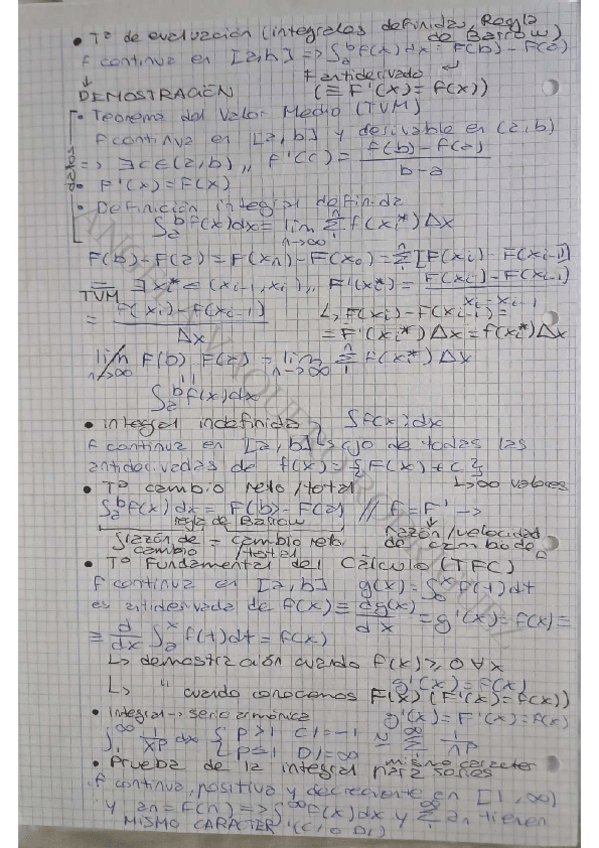 • Tª de evaluación (integrales definidas, Regla de Barrow)
f continua en [a,b] => ∫ₐᵇ f(x)dx = F(b) - F(a)
F antiderivada
DEMOSTRACIÓN (≡ F'(x) = f(x))
datos
• Teorema del Valor Medio (TVM)
f continua en [a,b] y derivable en (a,b)
=> ∃ c ∈ (a,b) ,, f'(c) = f(b) - f(a) / b - a
• F'(x) = f(x)
• Definición integral definida
∫ₐᵇ f(x)dx = lim n→∞ Σ f(xi*) Δx
F(b) - F(a) = F(xn) - F(x0) = Σ [F(xi) - F(xi-1)]
= TVM ∃ xi* ∈ (xi-1, xi) ,, F'(xi*) = F(xi) - F(xi-1) / xi - xi-1
= F(xi) - F(xi-1) / Δx
↳ F(xi) - F(xi-1) =
= F'(xi*) Δx = f(xi*) Δx
lim n→∞ F(b) - F(a) = lim n→∞ Σ f(xi*) Δx
∫ₐᵇ f(x)dx
• integral indefinida ∫ f(x)dx
f continua en [a,b] de todas las
antiderivadas de f(x) = {F(x) + c}
↳ ∞ valores
• Tª cambio neto/total
∫ₐᵇ f(x)dx = F(b) - F(a) // f = F' →
regla de Barrow
razón/velocidad de cambio de
∫ razón de cambio = cambio neto/total
• Tª Fundamental del Cálculo (TFC)
f continua en [a,b] g(x) = ∫ₐˣ f(t)dt
es antiderivada de f(x) ≡ dg(x)/dx = g'(x) = f(x) =
≡ d/dx ∫ₐˣ f(t)dt = f(x)
↳ demostración cuando f(x) ≥ 0 ∀x
g'(x) = f(x)
↳ " cuando conocemos F(x) (F'(x) = f(x))
g'(x) = F'(x) = f(x)
• Integral → serie armónica
∫₁^∞ 1/xᵖ dx { p>1 C
p≤1 D ≈ Σ 1/nᵖ
mismo carácter
• Prueba de la integral para series
f continua, positiva y decreciente en [1, ∞)
y an = f(n) => ∫₁^∞ f(x)dx y Σ an tienen
MISMO CARÁCTER (C/o D)